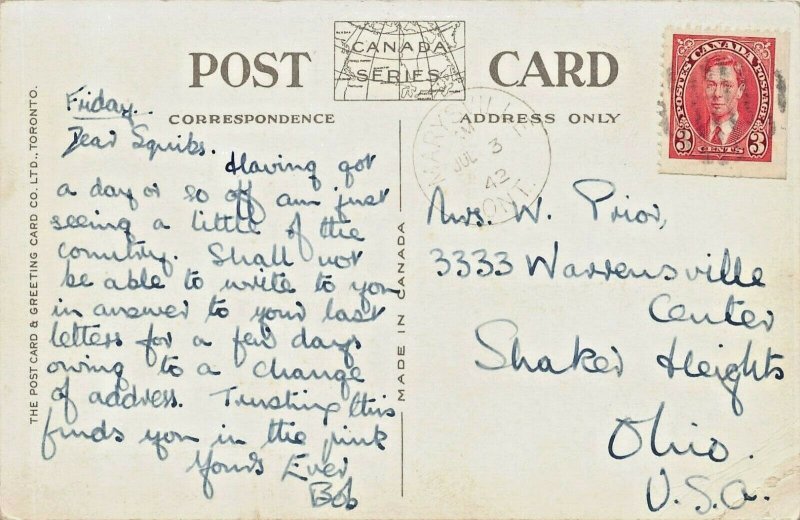 POST CARD
CANADA
SERIES
CORRESPONDENCE
ADDRESS ONLY
THE POST CARD & GREETING CARD CO. LTD., TORONTO.
MADE IN CANADA
POSTES CANADA POSTAGE
3 CENTS 3
MARYSVILLE
AM
JUL 3
42
ONT.
Friday.
Dear Squibs.
Having got
a day or so off am just
seeing a little of the
country. Shall not
be able to write to you
in answer to your last
letters for a few days
owing to a change
of address. Trusting this
finds you in the pink
Yours Ever
Bob
Mrs. W. Prior,
3333 Warrensville
Center
Shaker Heights
Ohio.
U.S.A.